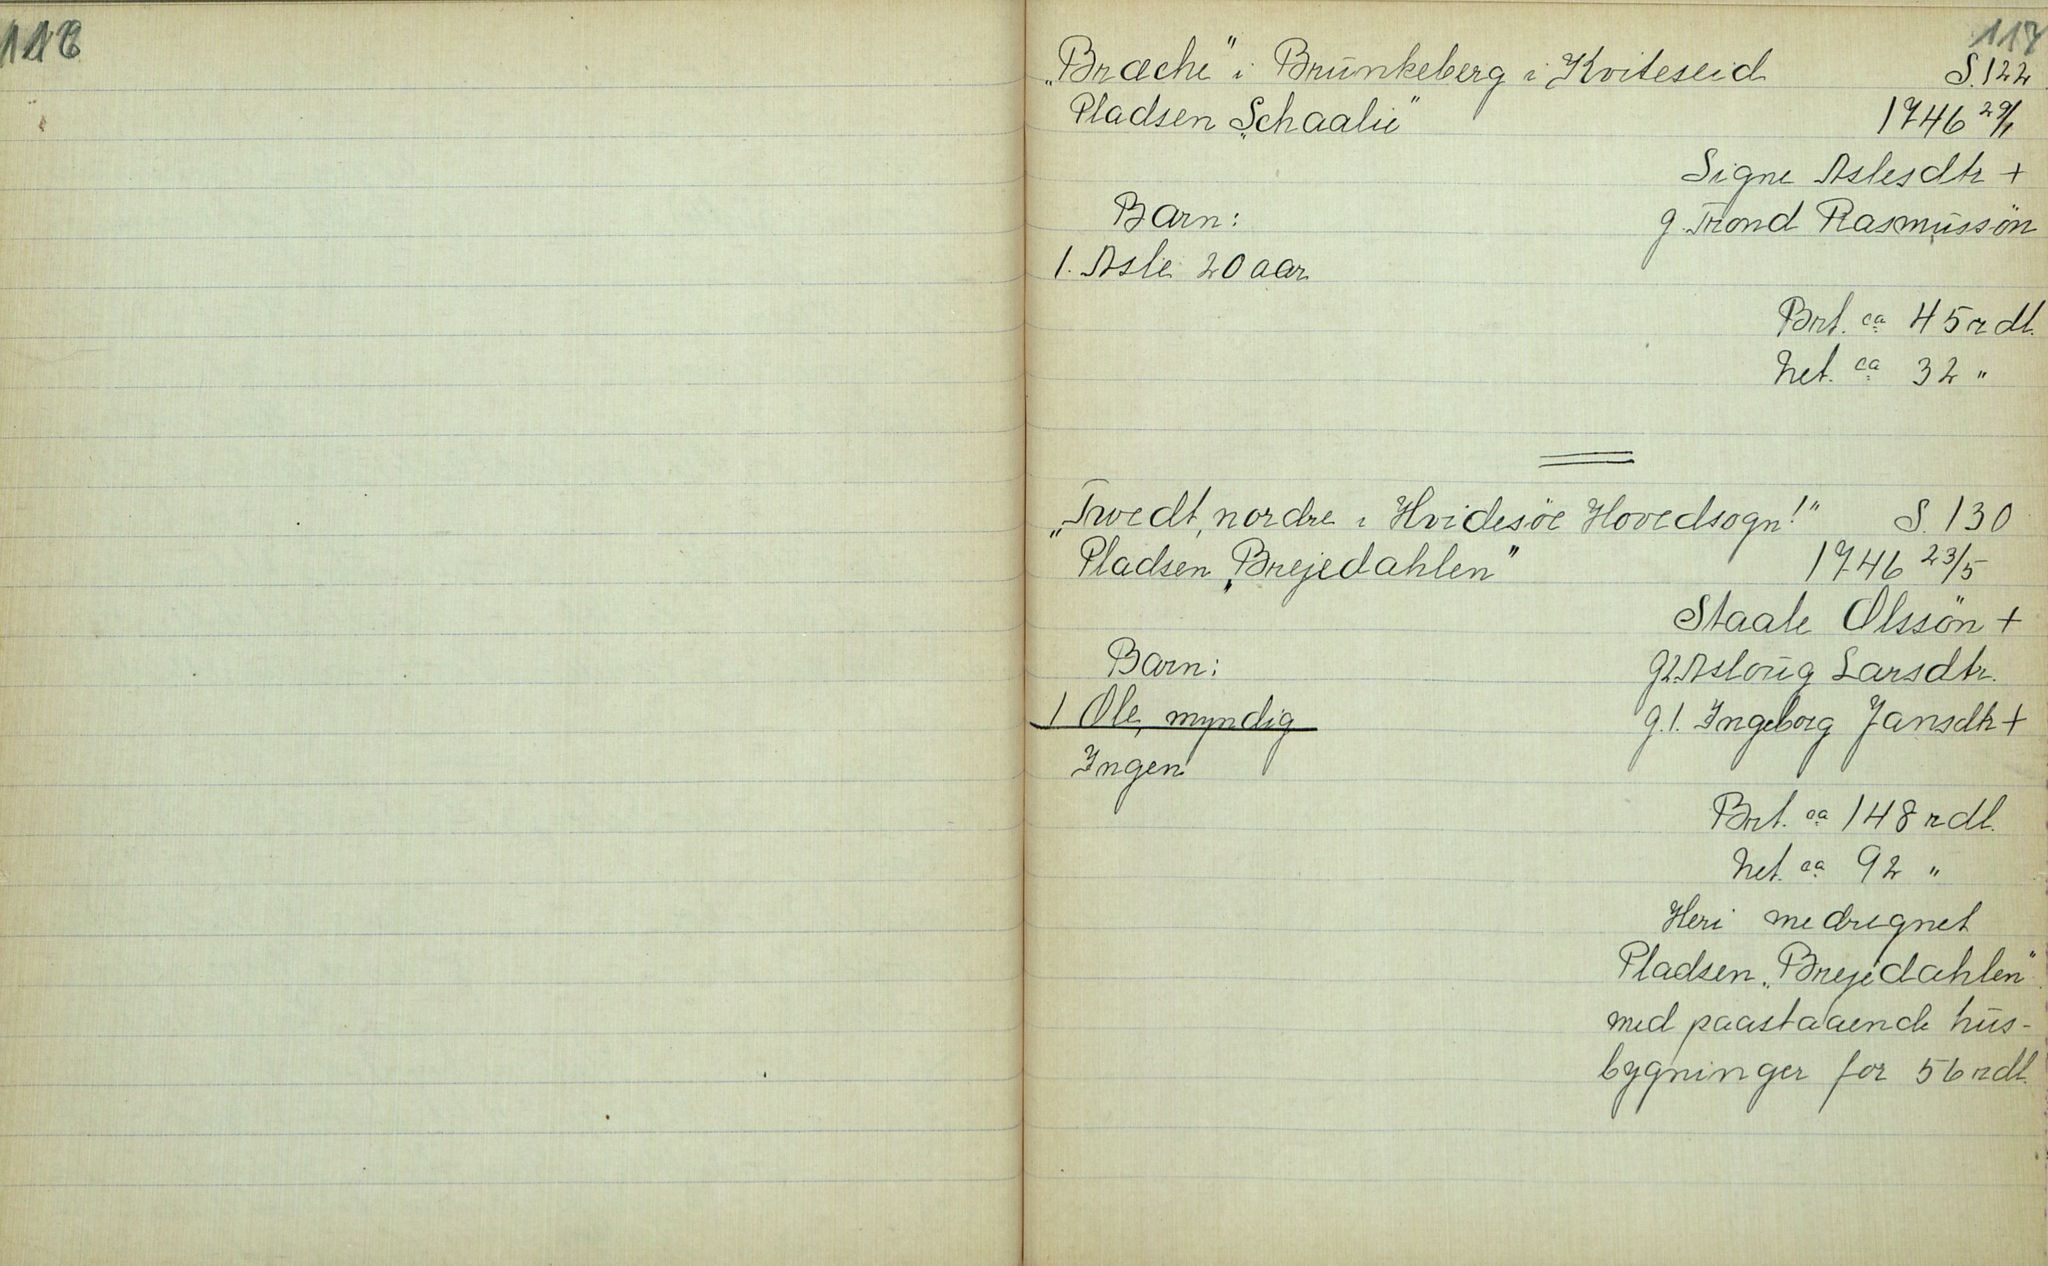 116
117
„Brache" i Brunkeberg i Kviteseid S. 122
Pladsen „Schaalii" 1746 29/1
Signe Aslesdtr +
Barn: g. Trond Rasmussön
1. Asle 20 aar
Brt. ca 45 rdl.
Net. ca 32 "
„Tvedt, nordre i Hvidesöe Hovedsogn!" S. 130
Pladsen „Brejedahlen" 1746 23/5
Staale Olssön +
Barn: g2. Asloug Larsdtr.
1 Ole, myndig g.1. Ingeborg Jansdtr +
Ingen
Brt. ca 148 rdl.
Net. ca 92 "
Heri medregnet
Pladsen „Brejedahlen"
med paastaaende hus-
bygninger for 56 rdl.